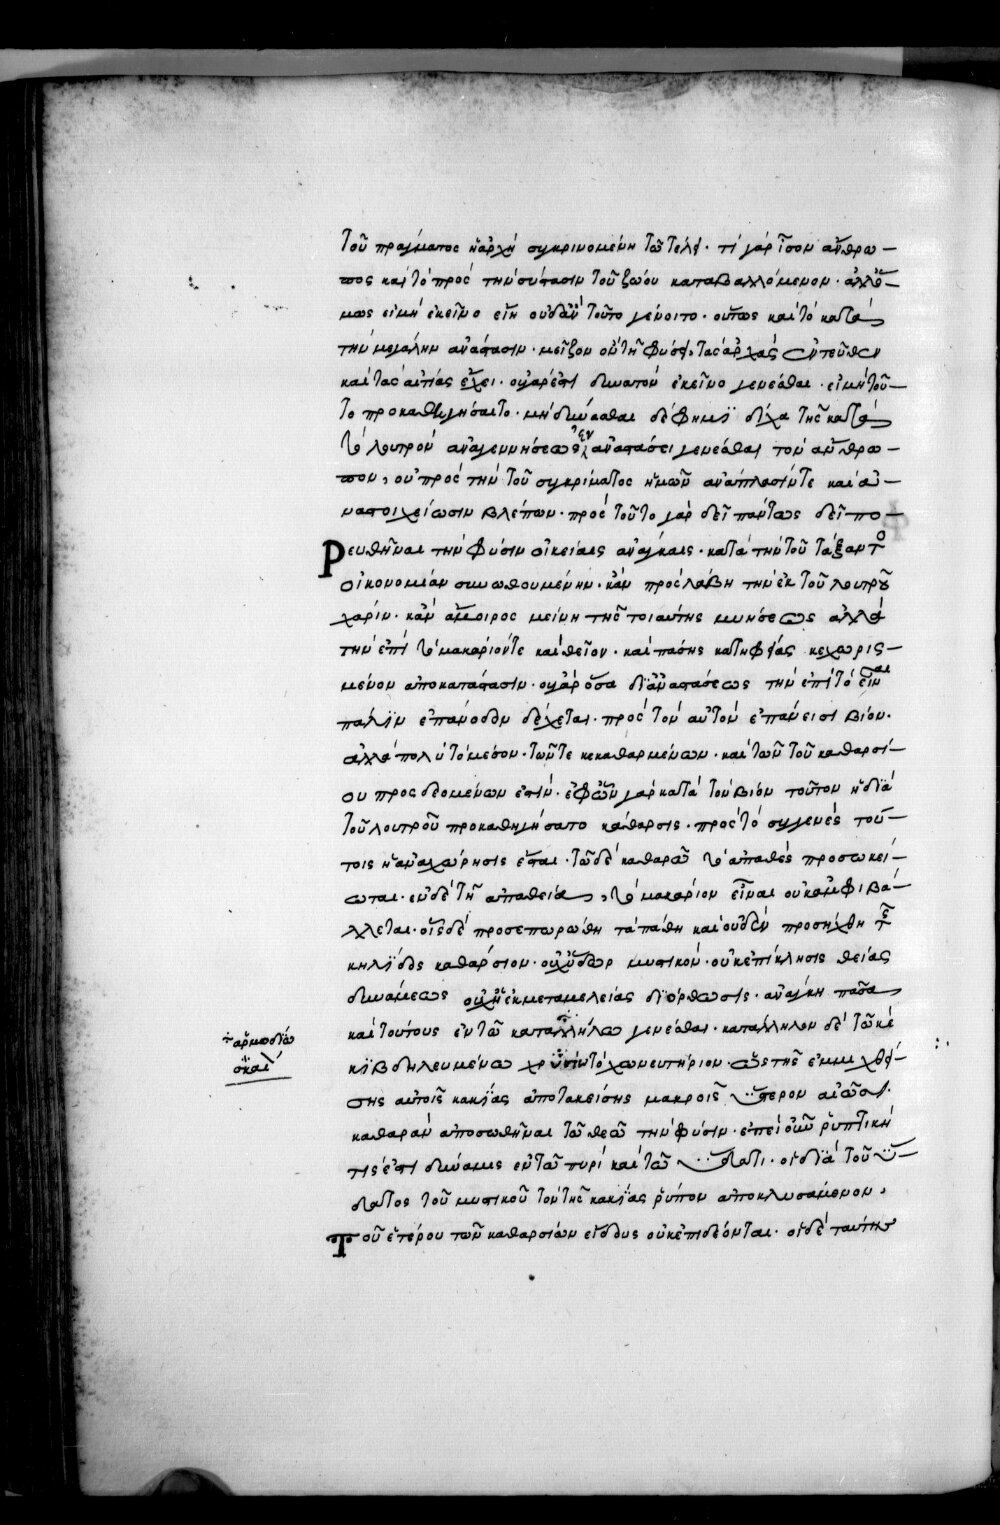 τοῦ πράγματος ἡ ἀρχὴ συγκρινομένη τῶ τέλει· τί γὰρ ἴσον ἄνθρω-
πος καὶ τὸ πρὸς τὴν σύστασιν τοῦ ζώου καταβαλλόμενον· ἀλλ' ὅ-
μως εἰ μὴ ἐκεῖνο εἴη οὐδ' ἂν τοῦτο γένοιτο· οὕτως καὶ τὸ κατὰ
τὴν μεγάλην ἀνάστασιν· μεῖζον ὂν τῆ φύσει, τὰς ἀρχὰς ἐντεῦθεν
καὶ τὰς αἰτίας ἔχει· οὐ γάρ ἐστι δυνατὸν ἐκεῖνο γενέσθαι· εἰ μὴ τοῦ-
το προκαθηγήσαιτο· μὴ δύνασθαι δέ φημὶ δίχα τῆς κατὰ
τὸ λουτρὸν ἀναγεννήσεως ἐν ἀναστάσει γενέσθαι τὸν ἄνθρω-
πον, οὐ πρὸς τὴν τοῦ συγκρίματος ἡμῶν ἀνάπλασίν τε καὶ ἀ-
ναστοιχείωσιν βλέπων· πρὸς τοῦτο γὰρ δεῖ πάντως δεῖ πο-
ρευθῆναι τὴν φύσιν οἰκείαις ἀνάγκαις· κατὰ τὴν τοῦ τάξαντο
οἰκονομίαν συνωθουμένην· κἂν προσλάβη τὴν ἐκ τοῦ λουτροῦ
χάριν· κἂν ἄμοιρος μείνη τῆς τοιαύτης μυήσεως ἀλλὰ
τὴν ἐπὶ τὸ μακάριόν τε καὶ θεῖον· καὶ πάσης κατηφείας κεχωρισ-
μένον ἀποκατάστασιν· οὐ γὰρ ὅσα δι' ἀναστάσεως τὴν ἐπὶ τὸ εἶναι
πάλιν ἐπάνοδον δέχεται· πρὸς τὸν αὐτὸν ἐπάνεισι βίον·
ἀλλὰ πολὺ τὸ μέσον· τῶν τε κεκαθαρμένων· καὶ τῶν τοῦ καθαρσί-
ου προσδεομένων ἐστίν· ἐφ' ὧν γὰρ κατὰ τὸν βίον τοῦτον ἡ διὰ
τοῦ λουτροῦ προκαθηγήσατο κάθαρσις· πρὸς τὸ συγγενὲς τού-
τοις ἡ ἀναχώρησις ἔσται· τῶ δὲ καθαρῶ τὸ ἀπαθὲς προσωκεί-
ωται· ἐν δὲ τῆ ἀπαθεία, τὸ μακάριον εἶναι οὐκ ἀμφιβά-
λλεται· οἷς δὲ προσεπωρώθη τὰ πάθη καὶ οὐδὲν προσήχθη τῆς
κηλίδος καθάρσιον· οὐχ ὕδωρ μυστικόν· οὐκ ἐπίκλησις θείας
δυνάμεως οὐχ ἡ ἐκ μεταμελείας διόρθωσις· ἀνάγκη πᾶσα
καὶ τούτους ἐν τῶ καταλλήλω γενέσθαι· κατάλληλον δὲ τῶ κε
κιβδηλευμένω χρυσίω τὸ χωνευτήριον· ὡς τῆς ἐμμιχθεί-
σης αὐτοῖς κακίας ἀποτακείσης μακροῖς ὕστερον αἰῶσι·
καθαρὰν ἀποσωθῆναι τῶ θεῶ τὴν φύσιν· ἐπεὶ οὖν ῥυπτική
τις ἐστὶ δύναμις ἐν τῶ πυρὶ καὶ τῶ ὕδατι· οἱ διὰ τοῦ ὕ-
δατος τοῦ μυστικοῦ τὸν τῆς κακίας ῥύπον ἀποκλυσάμενον,
τοῦ ἑτέρου τῶν καθαρσίων εἴδους οὐκ ἐπιδέονται· οἱ δὲ ταύτης